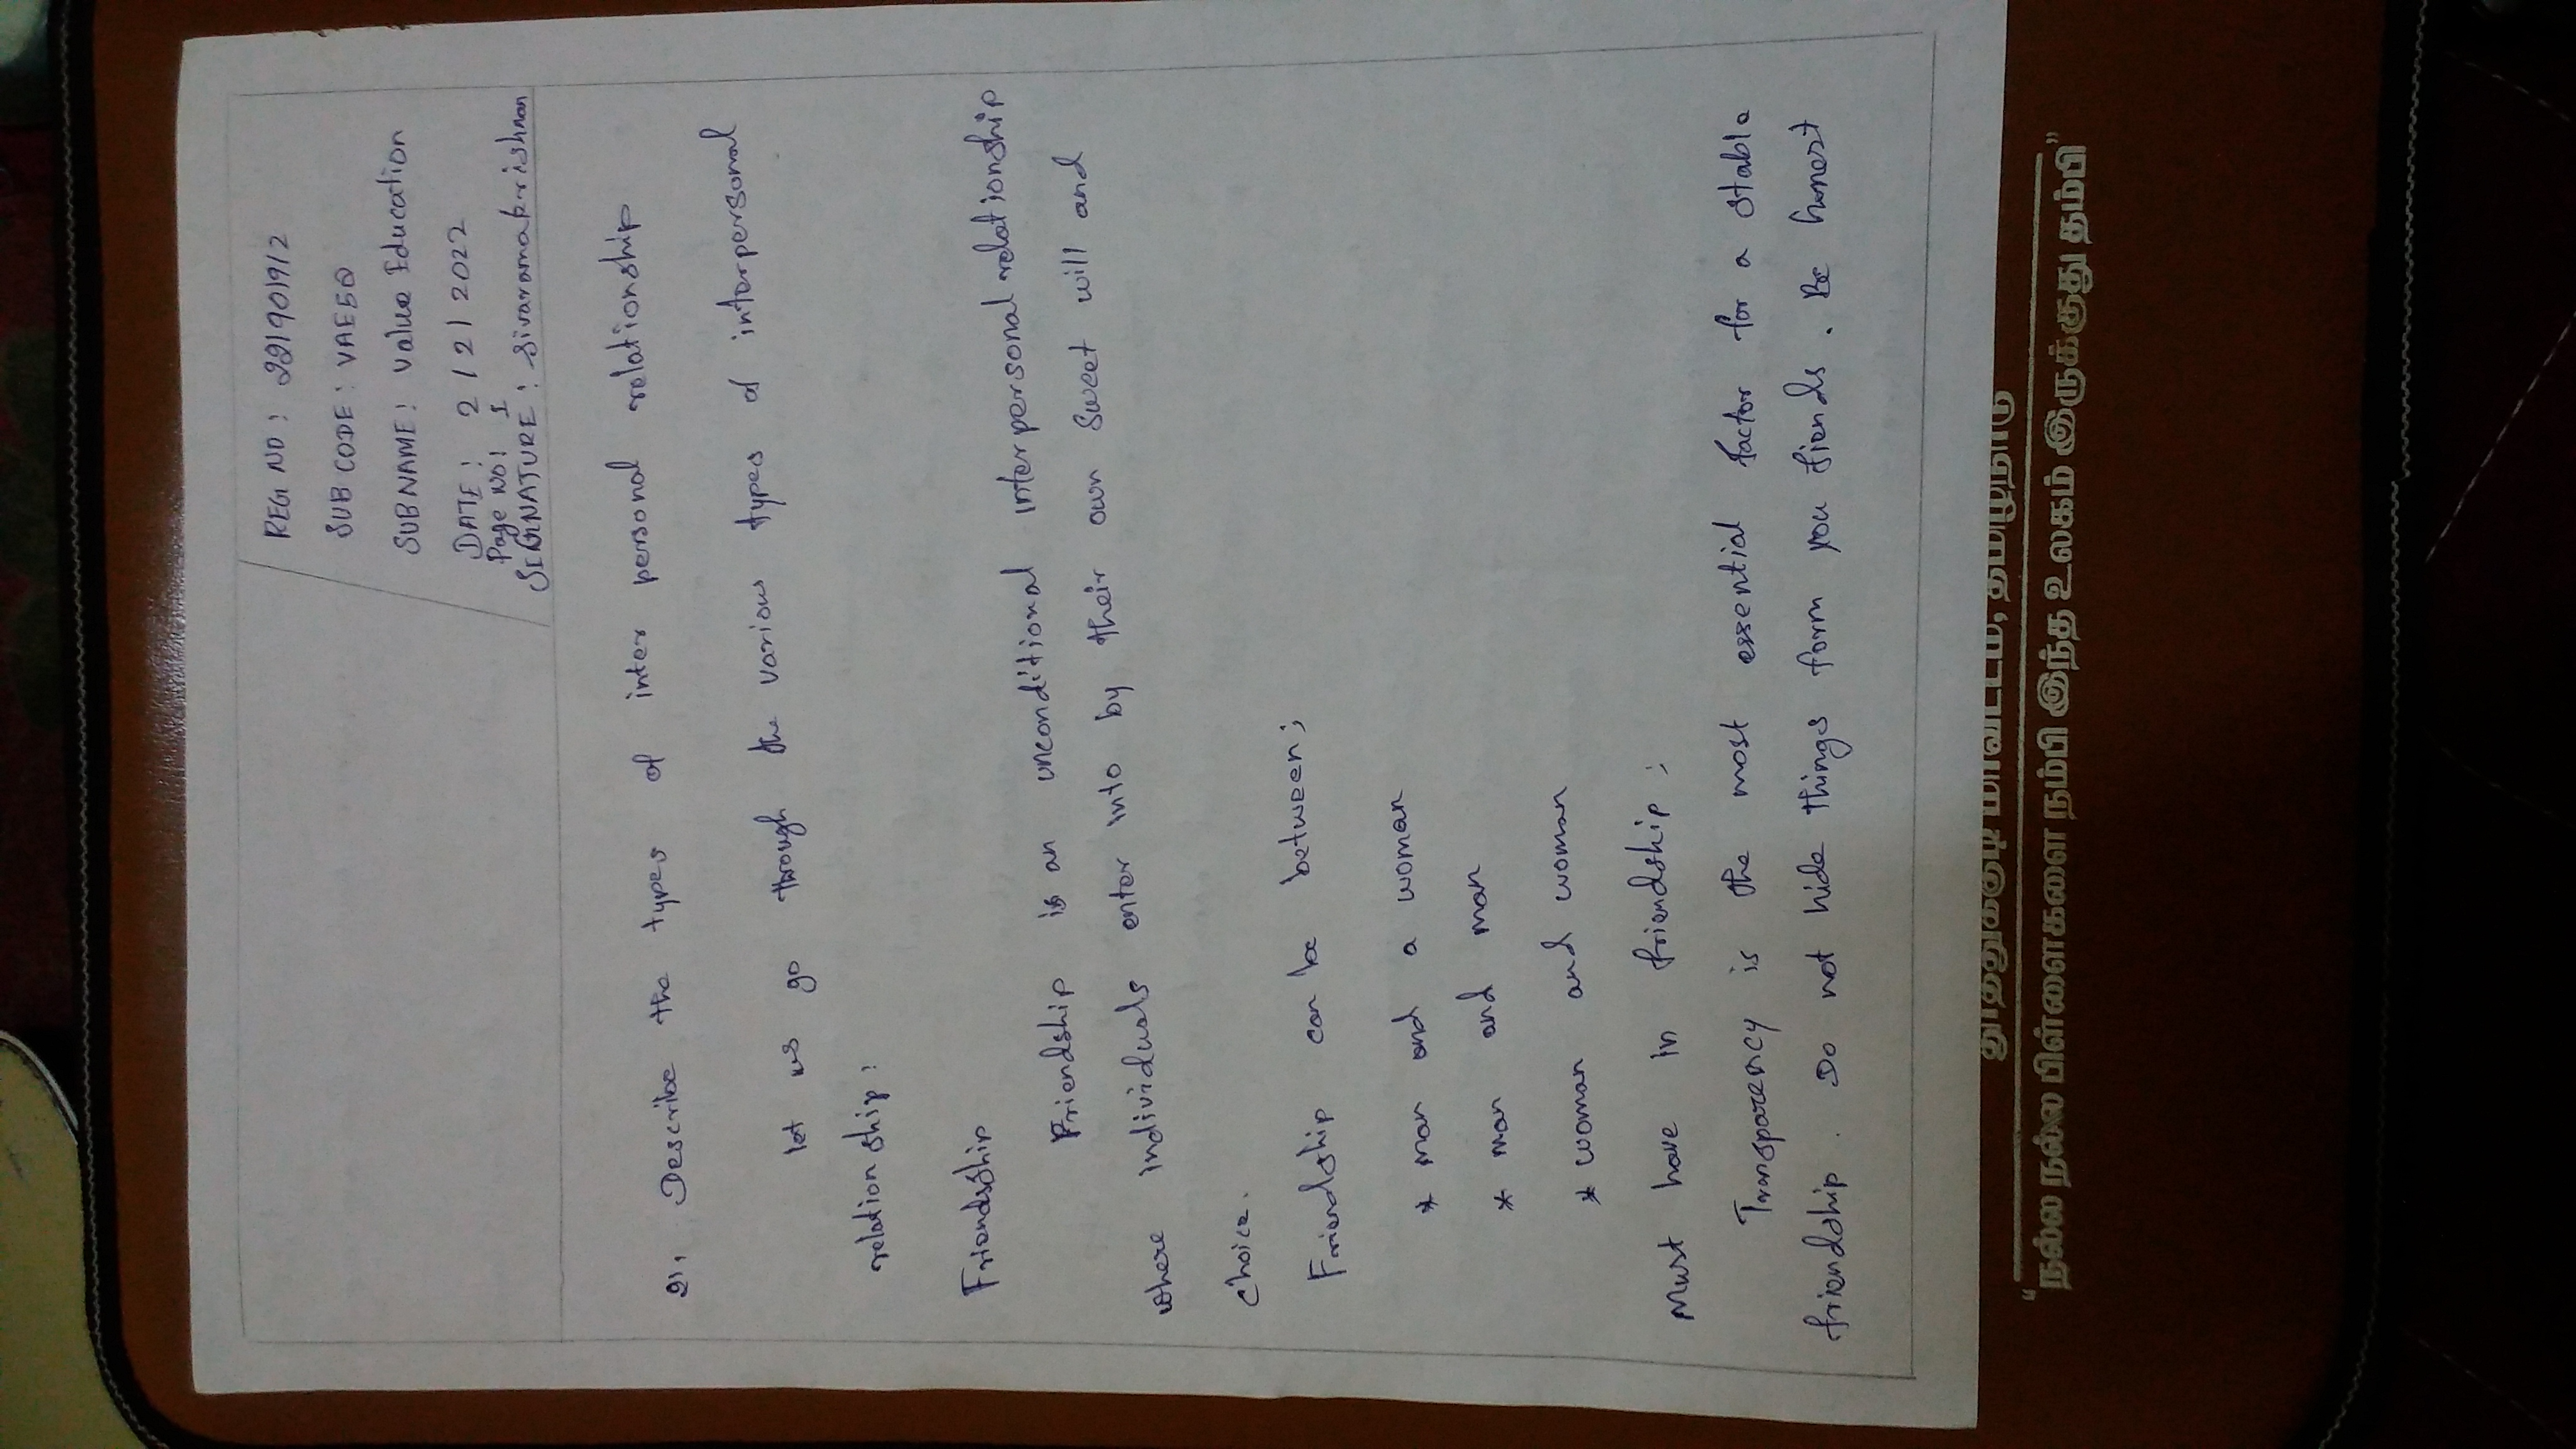 REG NO : 221901912
SUB CODE : VAE5Q
SUBNAME : Value Education
DATE : 2 / 2 / 2022
Page NO : 1
SIGNATURE : Sivaramakrishnan
2), Describe the types of inter personal relationship
let us go through the various types of interpersonal
relation ship :
Friendship
Friendship is an unconditional interpersonal relationship
where individuals enter into by their own sweet will and
choice.
Friendship can be between ;
* man and a woman
* man and man
* woman and woman
Must have in friendship :
Transparency is the most essential factor for a stable
friendship . Do not hide things form you fiends . Be honest
தூத்துக்குடி மாவட்டம், தமிழ்நாடு
“நல்ல நல்ல பிள்ளைகளை நம்பி இந்த உலகம் இருக்குது தம்பி”